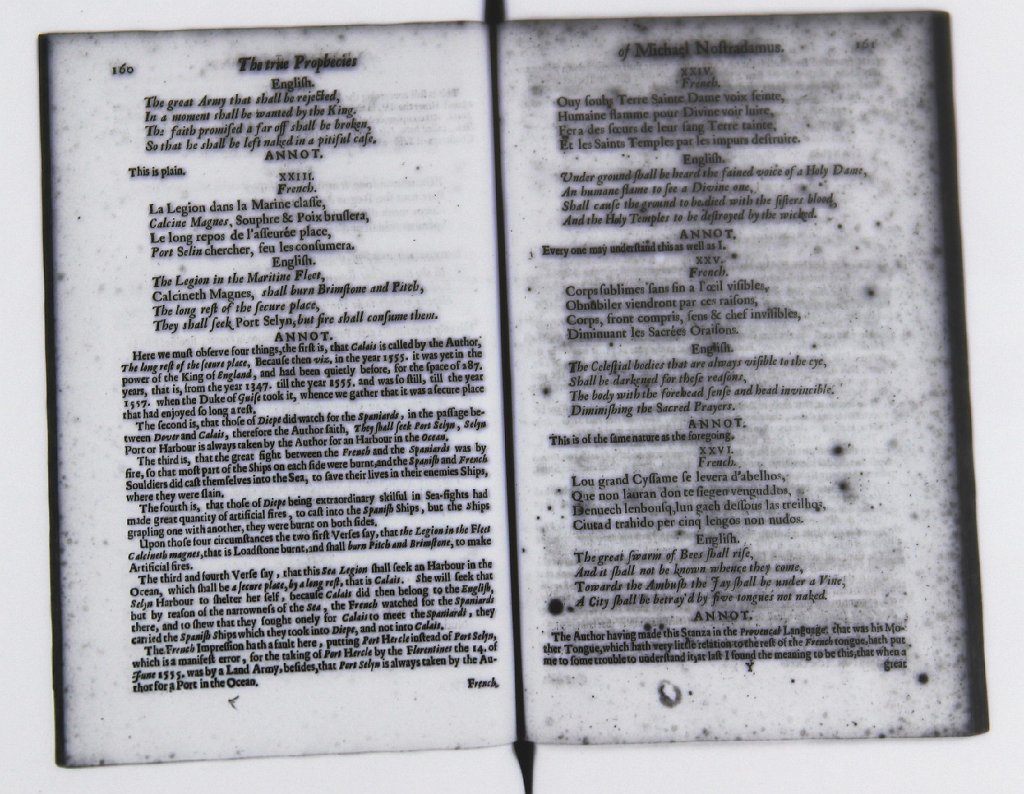 160
The true Prophecies
English.
The great Army that shall be rejected,
In a moment shall be wanted by the King.
The faith promised a far off shall be broken,
So that he shall be left naked in a pitiful case.
ANNOT.
This is plain.
XXIII.
French.
La Legion dans la Marine classe,
Calcine Magnes, Souphre & Poix bruslera,
Le long repos de l'asseurée place,
Port Selin chercher, feu les consumera.
English.
The Legion in the Maritine Fleet,
Calcineth Magnes, shall burn Brimstone and Pitch,
The long rest of the secure place,
They shall seek Port Selyn, but fire shall consume them.
ANNOT.
Here we must observe four things, the first is, that Calais is called by the Author,
The long rest of the secure place, Because then viz. in the year 1555. it was yet in the
power of the King of England, and had been quietly before, for the space of 287.
years, that is, from the year 1347. till the year 1555. and was so still, till the year
1557. when the Duke of Guise took it, whence we gather that it was a secure place
that had enjoyed so long a rest.
The second is, that those of Diepe did watch for the Spaniards, in the passage be-
tween Dover and Calais, therefore the Author saith, They shall seek Port Selyn, Selyn
Port or Harbour is always taken by the Author for an Harbour in the Ocean.
The third is, that the great fight between the French and the Spaniards was by
fire, so that most part of the Ships on each side were burnt, and the Spanish and French
Souldiers did cast themselves into the Sea, to save their lives in their enemies Ships,
where they were slain.
The fourth is, that those of Diepe being extraordinary skilful in Sea-fights had
made great quantity of artificial fires, to cast into the Spanish Ships, but the Ships
grapling one with another, they were burnt on both sides.
Upon those four circumstances the two first Verses say, that the Legion in the Fleet
Calcineth magnes, that is Loadstone burnt, and shall burn Pitch and Brimstone, to make
Artificial fires.
The third and fourth Verse say, that this Sea Legion shall seek an Harbour in the
Ocean, which shall be a secure place, by a long rest, that is Calais. She will seek that
Selyn Harbour to shelter her self, because Calais did then belong to the English,
but by reason of the narrowness of the Sea, the French watched for the Spaniards
there, and to shew that they fought onely for Calais to meet the Spaniards, they
carried the Spanish Ships which they took into Diepe, and not into Calais.
The French Impression hath a fault here, putting Port Hercle instead of Port Selyn,
which is a manifest error, for the taking of Port Hercle by the Florentines the 14. of
June 1555. was by a Land Army, besides, that Port Selyn is always taken by the Au-
thor for a Port in the Ocean.
French,
of Michael Nostradamus.
161
XXIV.
French.
Ouy soubs Terre Sainte Dame voix feinte,
Humaine flamme pour Divine voir luire,
Fera des sœurs de leur sang Terre tainte,
Et les Saints Temples par les impurs destruire.
English.
Under ground shall be heard the fained voice of a Holy Dame,
An humane flame to see a Divine one,
Shall cause the ground to be died with the sisters blood,
And the Holy Temples to be destroyed by the wicked.
ANNOT.
Every one may understand this as well as I.
XXV.
French.
Corps sublimes sans fin a l'œil visibles,
Obnubiler viendront par ces raisons,
Corps, front compris, sens & chef invisibles,
Diminuant les Sacrées Oraisons.
English.
The Celestial bodies that are always visible to the eye,
Shall be darkened for these reasons,
The body with the forehead sense and head invincible,
Diminishing the Sacred Prayers.
ANNOT.
This is of the same nature as the foregoing.
XXVI.
French.
Lou grand Cyssame se levera d'abelhos,
Que non lauran don te siegen venguddos,
Denuech lenbousq, lun gach dessous las treilhos,
Ciutad trahido per cinq lengos non nudos.
English.
The great swarm of Bees shall rise,
And it shall not be known whence they come,
Towards the Ambush the Jay shall be under a Vine,
A City shall be betray'd by five tongues not naked.
ANNOT.
The Author having made this Stanza in the Provencal Language that was his Mo-
ther Tongue, which hath very little relation to the rest of the French tongue, hath put
me to some trouble to understand it; at last I found the meaning to be this, that when a
Y
great